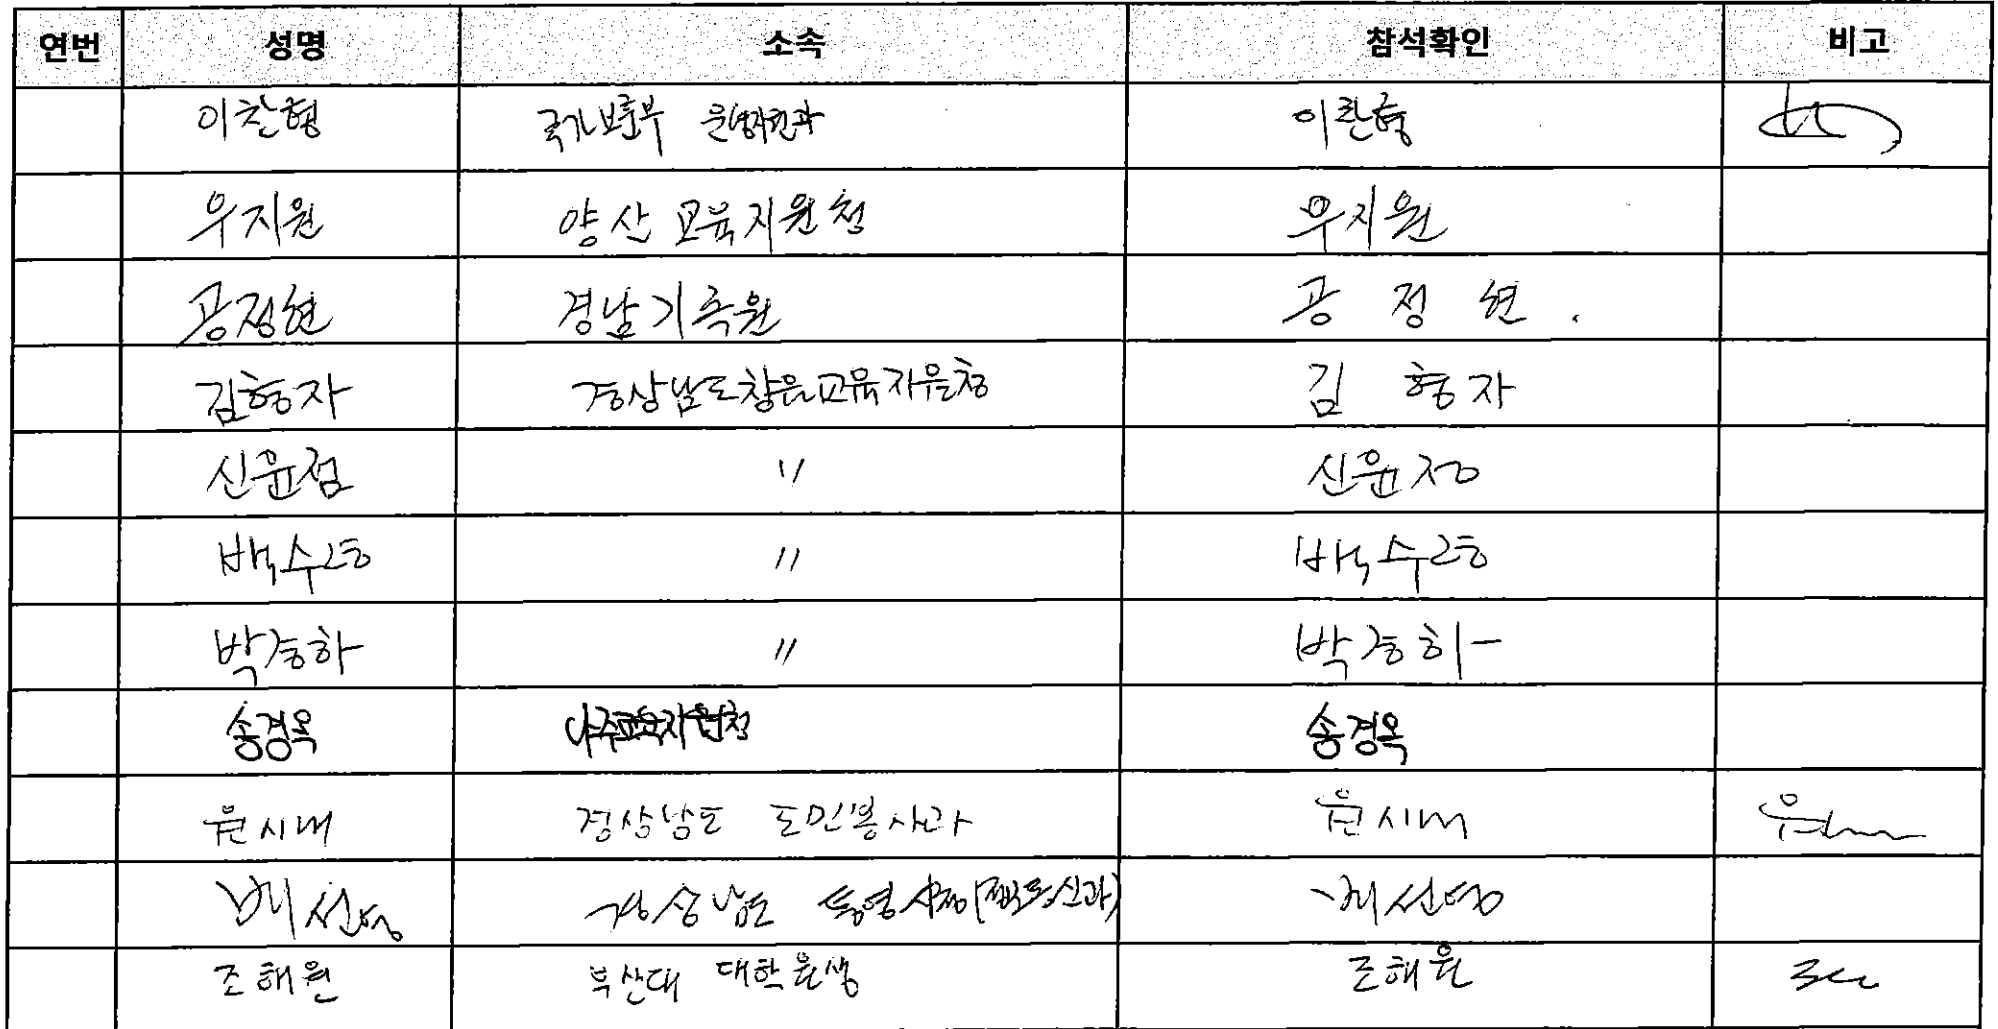 연번 성명 소속 참석확인 비고
이찬형 국가보훈부 운영지원과 이찬형
우지원 양산교육지원청 우지원
공정현 경남기록원 공 정 현 .
김형자 경상남도창원교육지원청 김 형자
신윤점 〃 신윤점
백수경 〃 백수경
박경하 〃 박경하
송경옥 나주교육지원청 송경옥
윤시내 경상남도 도민봉사과 윤시내
배선영 경상남도 통영시청 배선영
조해원 부산대 대학원생 조해원